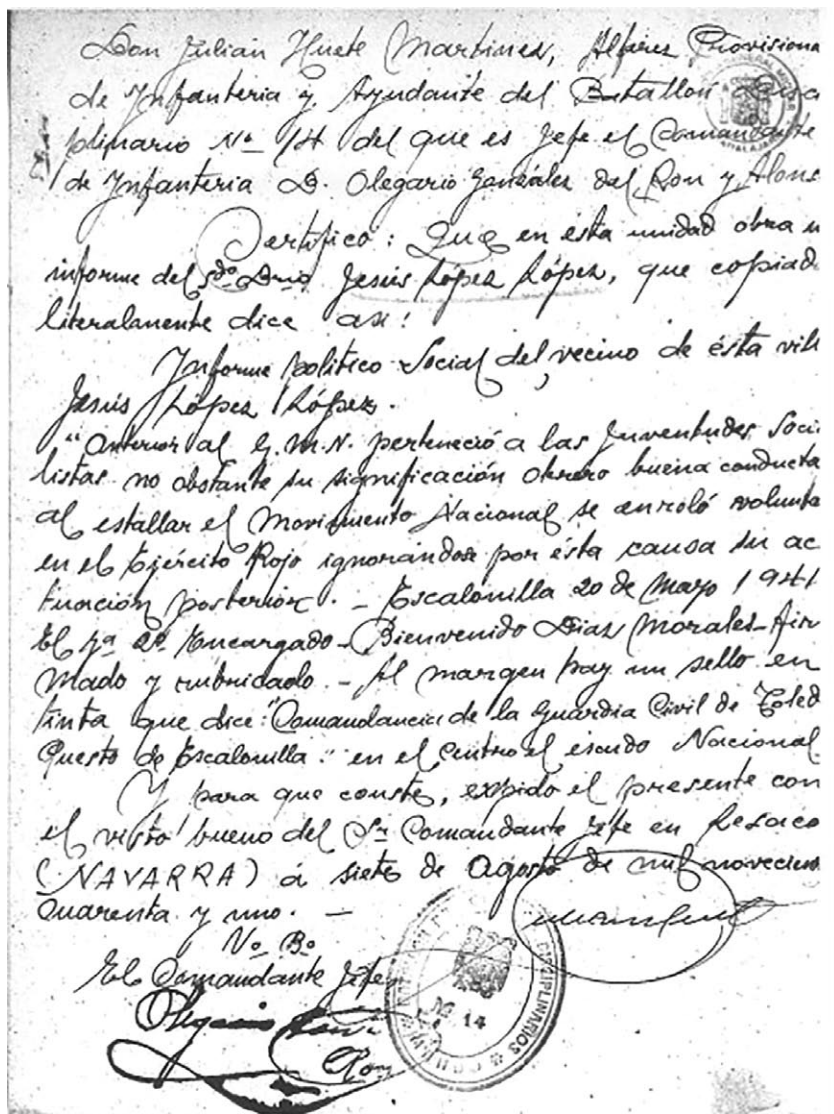 Don Julian Huete Martinez, Alferez Provisiona
de Infanteria y Ayudante del Batallon
plinario Nº 14 del que es Jefe el Comandante
de Infanteria D. Olegario González del Ron y Alons
Certifico: Que en ésta unidad obra u
informe del sdº Drio Jesús López López, que copiad
literalanente dice asi:
Informe Politico Social del vecino de ésta vill
Jesús López López.
"Anterior al G.M.N. perteneció a las Juventudes Soci
listas no obstante su significación obrero buena conducta
al estallar el Movimiento Nacional se enroló volunta
en el Ejército Rojo ignorándose por ésta causa su ac
tuación posterior. - Escalonilla 20 de Mayo 1941
El gª 2º Encargado - Bienvenido Diaz Morales - Fir
mado y rubricado. - Al margen hay un sello en
tinta que dice: "Comandancia de la Guardia Civil de Toled
Puesto de Escalonilla." en el centro el escudo Nacional
Y para que conste, expido el presente con
el visto bueno del Sr Comandante Jefe en Lesaca
(NAVARRA) á siete de Agosto de mil novecien
cuarenta y uno. -
Vº Bº
El Comandante Jefe
Olegario
Ron
Nº 14
DISCIPLINARIOS